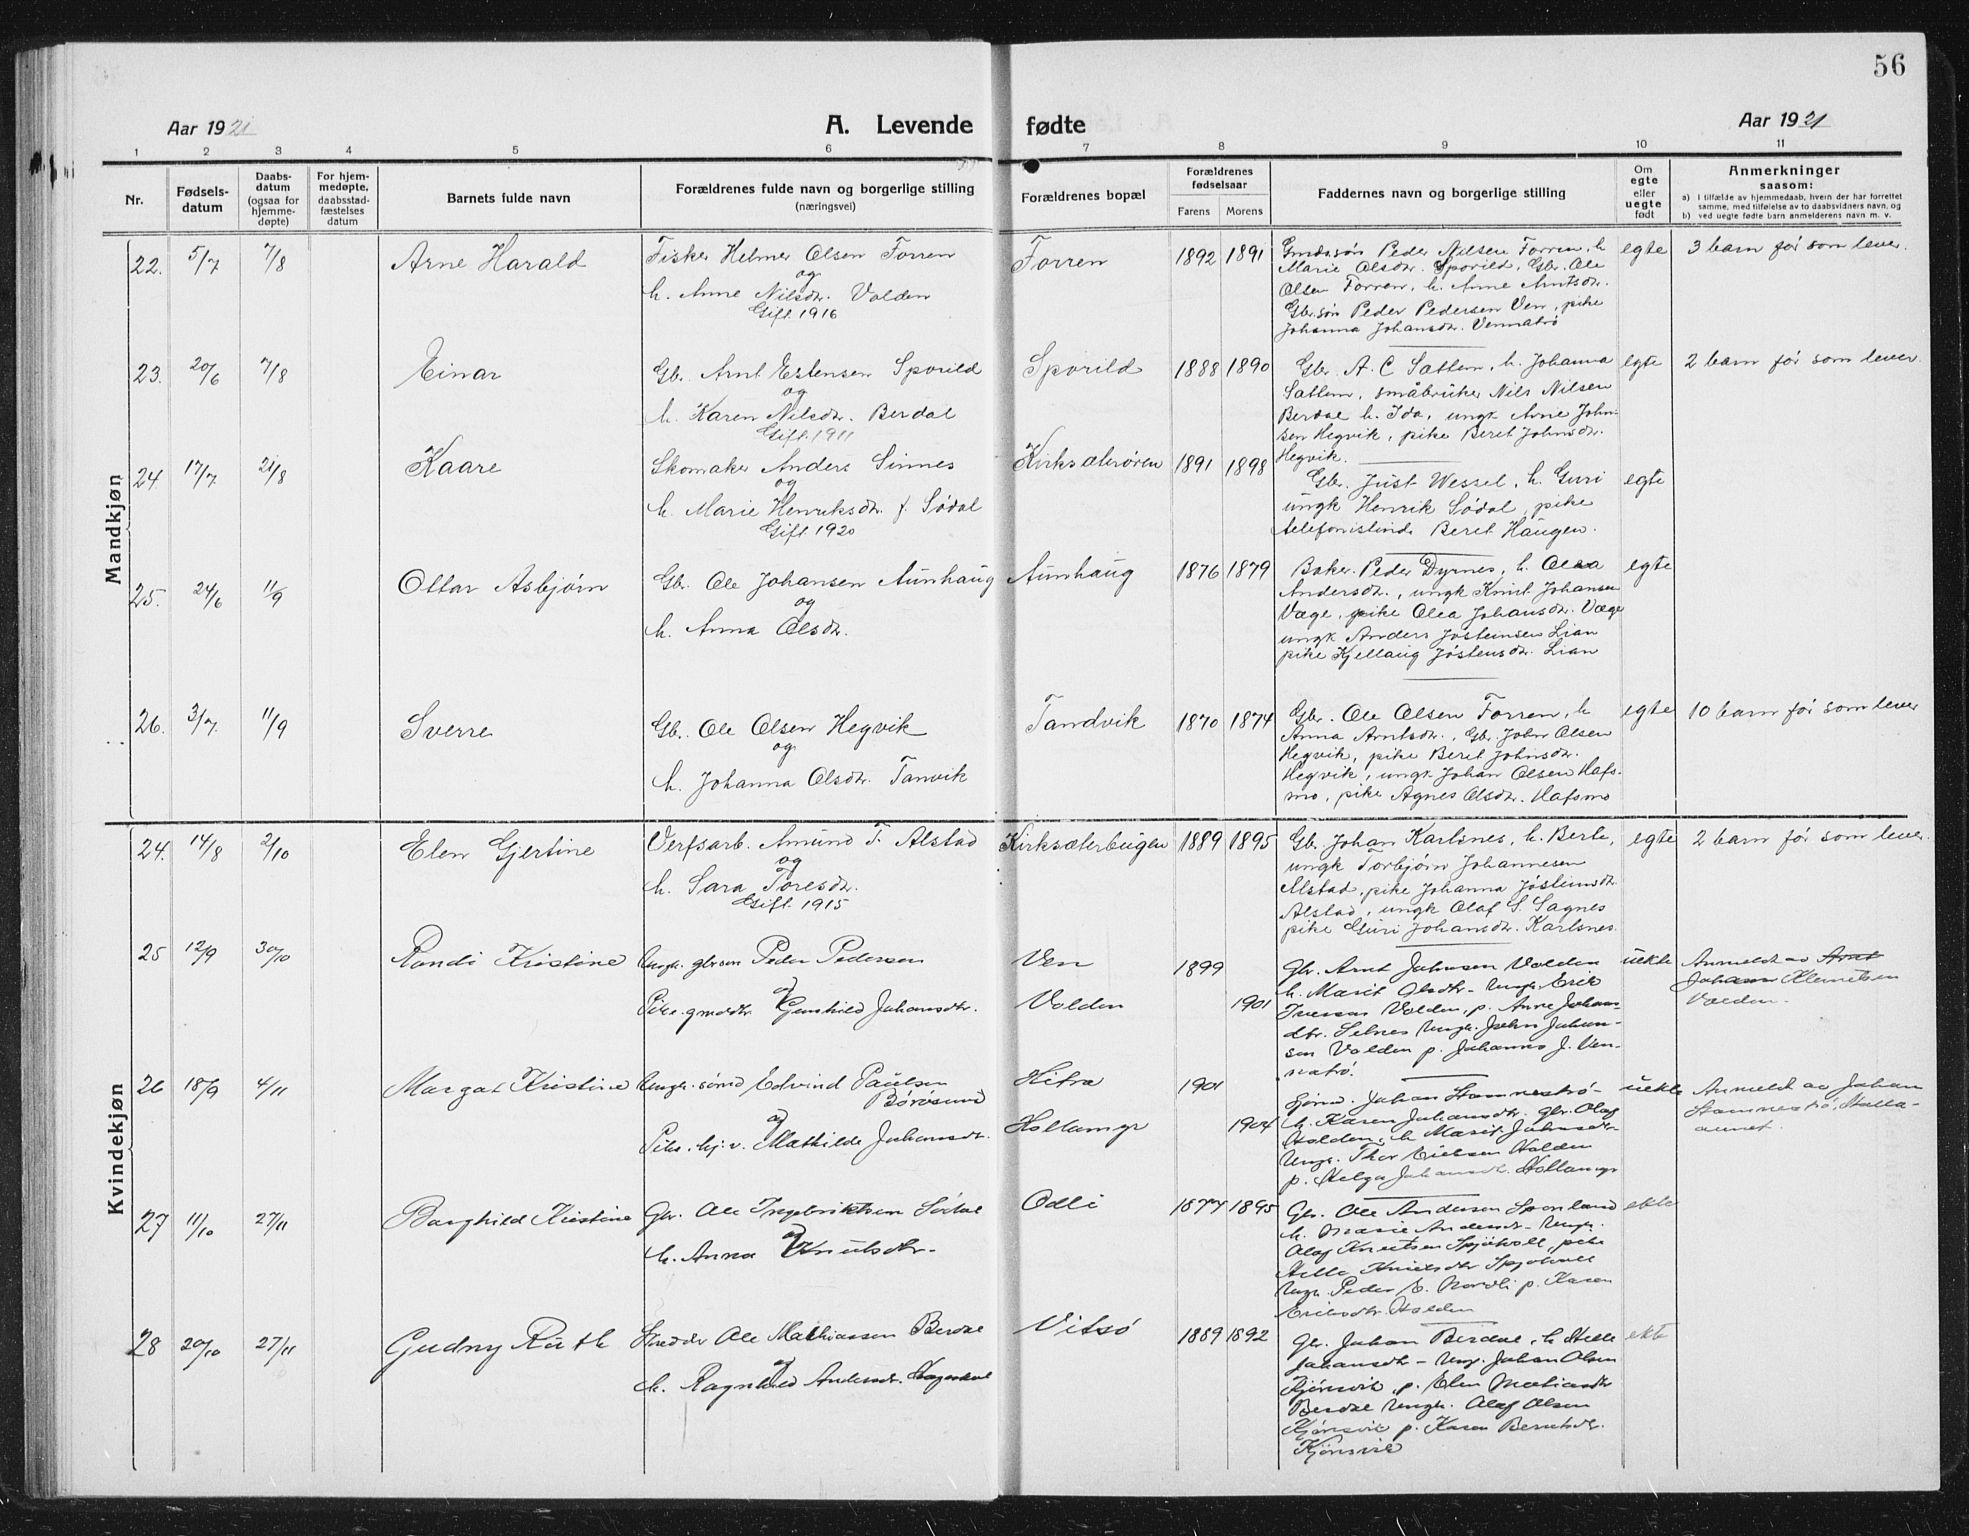 56
Aar 1921
A. Levende fødte
Aar 1921
1 2 3 4 5 6 7 8 9 10 11
Nr.
Fødsels-
datum
Daabs-
datum
(ogsaa for
hjemme-
døpte)
For hjem-
medøpte,
daabsstad-
fæstelses
datum
Barnets fulde navn
Forældrenes fulde navn og borgerlige stilling
(næringsvei)
Forældrenes bopæl
Forældrenes
fødselsaar
Farens Morens
Faddernes navn og borgerlige stilling
Om
egte
eller
uegte
født
Anmerkninger
saasom:
a) I tilfælde av hjemmedaab, hvem der har forrettet
samme, med tilføielse av to daabsvidners navn, og
b) ved uegte fødte barn anmelderens navn m. v.
Mandkjøn
22. 5/7 7/8 Arne Harald
Fisker Helmer Olsen Forren
og
h. Anne Nilsdtr. Volden
Gift 1916
Forren 1892 1891
Gmdssøn Peder Nilsen Forren, h.
Marie Olsdtr. Sporild, Gbr. Ole
Olsen Forren, h. Anne Arntsdr.
Gbr.søn Peder Pedersen Ven, pike
Johanna Johansdtr. Vennatrø
egte 3 barn før som lever.
23. 20/6 7/8 Einar
Gb. Arnt Estensen Sporild
og
h. Karen Nilsdtr. Berdal
Gift 1911
Sporild 1888 1890
Gbr. A. C. Sættem, h. Johanna
Sættem, småbruker Nils Nilsen
Berdal h. Ida, ungk Arne John-
sen Hegvik, pike Beret Johnsdtr.
Hegvik.
egte 2 barn før som lever.
24. 17/7 21/8 Kaare
Skomaker Anders Sinnes
og
h. Marie Henriksdtr. f. Sødal
Gift 1920
Kirksæterøren 1891 1898
Gbr. Just Wessel, h. Guri
ungk Henrik Sødal, pike
telefonistinde Beret Haugen.
egte
25. 24/6 11/9 Ottar Asbjørn
Gb. Ole Johansen Aunhaug
og
h. Anna Olsdtr.
Aunhaug 1876 1879
Baker Peder Dyrnes, h. Olea
Andersdtr., ungk Knut Johansen
Væge, pike Olea Johansdtr. Væge
ungk Anders Jøsteinsen Lian
pike Kjellaug Jøstensdtr. Lian
egte
26. 3/7. 11/9 Sverre
Gb. Ole Olsen Hegvik
og
h. Johanna Olsdtr. Tanvik
Tandvik 1870 1874
Gbr. Ole Olsen Forren, h
Anna Arntsdtr., Gb. John Olsen
Hegvik, pike Beret Johnsdtr.
Hegvik, ungk Johan Olsen Hafs-
mo, pike Agnes Olsdtr. Hafsmo
egte 10 barn før som lever
Kvindekjøn
24. 14/8 2/10 Elen Gjertine
Verfsarb. Amund T. Alstad
og
h. Sara Toresdtr.
Gift 1915
Kirksæterbugen 1889 1895
Gb. Johan Karlsnes, h. Berte,
ungk Torbjørn Johannesen
Alstad, pike Johanna Jøsteinsdtr.
Alstad, ungk Olaf S. Sagnes
pike Guri Johansdtr. Karlsnes.
egte 2 barn før som lever.
25 12/9 30/10 Randi Kristine
Ungk. gbrsøn Peder Pedersen
og
Pike gmdtr. Gunhild Johansdtr.
Ven 1899
Volden 1901
Gbr. Arnt Johnsen Volden
h. Marit Olsdtr - Ungk. Erik
Iversen Volden, p. Anne Johans-
dtr. Selnes Ungk. John Johan-
sen Volden p. Johanna J. Ven-
natrø.
uekte Anmeldt av Arnt
Johann Klemetsen
Volden.
26 18/9 4/11 Margat Kristine
Ungk. sømd Edvind Paulsen
Børøsund
og
Pike hj.v. Mathilde Johansdtr.
Hitra 1901
Hollamgr 1904
Sjømd. Johan Stamnestrø-
h. Karen Johansdtr. Gbr. Olaf
Holden, h. Marit Johnsdtr-
Ungk. Thor Eielsen Holden
p. Helga Johansdtr. Hollamgr
uekte Anmeldt av Johan
Stamnestrø, Holla-
annet.
27 11/10 27/11 Borghild Kristine
Gbr. Ole Ingebriktsen Sødal
og
h. Anna Knutsdtr.
Odli 1877 1895
Gbr. Ole Andersen Svorland
h. Marie Andersdtr - Ungk.
Olaf Knutsen Spjøtvoll, pike
Helle Knutsdtr Spjøtvoll
Ungk. Peder E. Nordli p. Karen
Eriksdtr. Holden
ekte
28 20/10 27/11 Gudny Ruth
Snedker Ole Mathiassen Berdal
og
h. Ragnhild Andersdtr.
Vitsø 1889 1892
Gbr. Johan Berdal, h. Helle
Johansdtr - Ungk. Johan Olsen
Kjønsvik, p. Elen Matiasdtr
Berdal Ungk. Olaf Olsen
Kjønsvik p. Karen Berntsdtr.
Kjønsvik
ekte